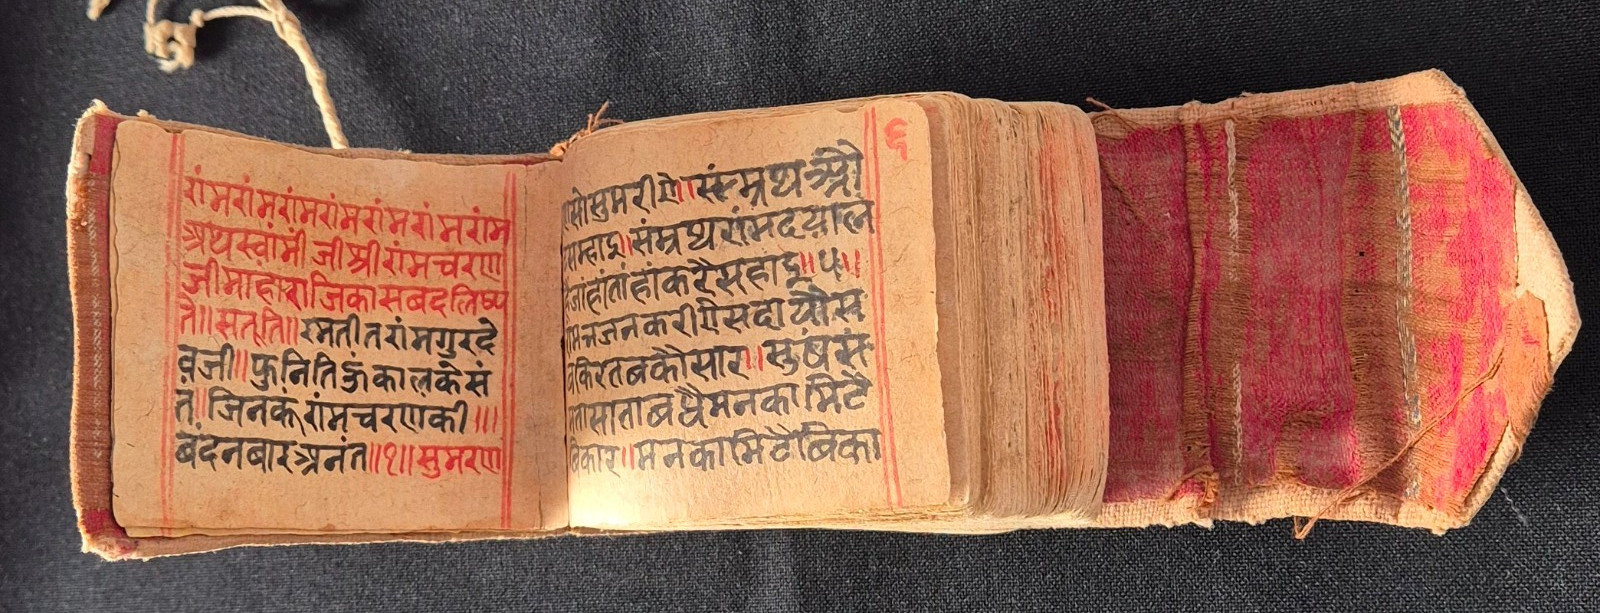 रांमरांमरांमरांमरांमरांमरांम
अथस्वांमीं जीश्रीरांमचरण
जीमाहाराजिकासबदलिष्य
ते॥सतूति॥रमतीतरांमगुरदे
वजी॥फुनितिऊंकालकेसं
त॥जिनकूंरांमचरणकी॥॥
बंदनबारअनंत॥१॥सुमरण
६
सोसुमरीये॥संम्रथ
सम्हाइ॥संम्रथरांमदयाल
हांतांहांकरैसहाइ॥५॥
जनकरीयेसदा
किरतबकौसार॥सुंष
साताबधैमनकामिटै
बिकार॥मनकामिटैबिका